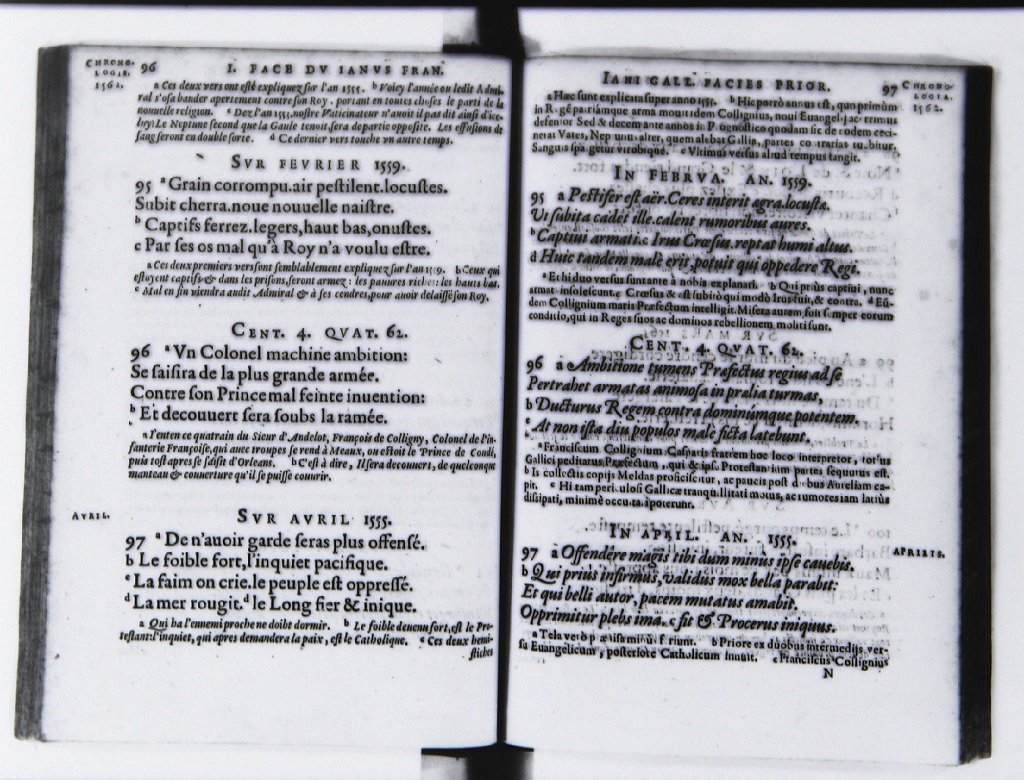 CHRONO-
LOGIE.
1562.
96 I. FACE DV IANVS FRAN.
a Ces deux vers ont esté expliquez sur l'an 1555. b Voicy l'année où ledit Admi-
ral s'osa bander apertement contre son Roy, portant en toutes choses le parti de la
nouuelle religion. c Dez l'an 1553. nostre Vaticinateur n'auoit il pas dit ainsi d'ice-
luy: Le Neptune second que la Gaule tenoit, sera de partie opposite. Les effusions de
sang seront en double sorte. d Ce dernier vers touche vn autre temps.
SVR FEVRIER 1559.
95 a Grain corrompu. air pestilent. locustes.
Subit cherra. noue nouuelle naistre.
b Captifs ferrez. legers, haut bas, onustes.
c Par ses os mal qu'à Roy n'a voulu estre.
a Ces deux premiers vers sont semblablement expliquez sur l'an 1559. b Ceux qui
estoyent captifs & dans les prisons, seront armez: les pauures riches: les hauts bas.
c Mal en fin viendra audit Admiral & à ses cendres, pour auoir delaissé son Roy.
CENT. 4. QVAT. 62.
96 a Vn Colonel machine ambition:
Se saisira de la plus grande armée.
Contre son Prince mal feinte inuention:
b Et decouuert sera soubs la ramée.
a I'enten ce quatrain du Sieur d'Andelot, François de Colligny, Colonel de l'in-
fanterie Françoise, qui auec troupes se rend à Meaux, où estoit le Prince de Condé,
puis tost apres se saisit d'Orleans. b C'est à dire, Il sera decouuers, de quelconque
manteau & couuerture qu'il se puisse couurir.
AVRIL. SVR AVRIL 1555.
97 a De n'auoir garde seras plus offensé.
b Le foible fort, l'inquiet pacifique.
c La faim on crie. le peuple est oppressé.
d La mer rougit. d le Long fier & inique.
a Qui ha l'ennemi proche ne doibt dormir. b Le foible deuenu fort, est le Pro-
testant: l'inquiet, qui apres demandera la paix, est le Catholique. c Ces deux hemi-
stiches
IANI GALL. FACIES PRIOR. 97
CHRONO-
LOGIA.
1562.
a Hæc sunt explicata super anno 1555. b Hic porrò annus est, quo primùm
in Regē patriámque arma mouit idem Collignius, noui Euangelij acerrimus
defensor Sed & decem ante annos in Prognostico quodam sic de eodem ceci-
nerat Vates, Neptunus alter, quem alebat Gallia, partes contrarias subibit.
Sanguis spargetur vtrobique. c Vltimus versus aliud tempus tangit.
IN FEBRVA. AN. 1559.
95 a Pestifer est aër. Ceres interit ægra. locusta.
Vt subita cadet ille. calent rumoribus aures.
b Captiui armati. c Irus Crœsus. reptat humi altus.
d Huic tandem malè erit, potuit qui oppedere Regi.
a Et hi duo versus sunt ante à nobis explanati. b Qui priùs captiui, nunc
armati insolescunt. c Crœsus & est subitò qui modò Irus fuit, & contra. d Eũ-
dem Collignium maris Præfectum intelligit. Misera autem fuit semper eorum
conditio, qui in Reges suos ac dominos rebellionem moliti sunt.
CENT. 4. QVAT. 62.
96 a Ambitione tumens Præfectus regius ad se
Pertrahet armatas animosa in prælia turmas,
b Ducturus Regem contra dominúmque potentem.
c At non ista diu populos male ficta latebunt.
a Franciscum Collignium Casparis fratrem hoc loco interpretor, totius
Gallici peditatus Præfectum, qui & ipse Protestantium partes sequutus est.
b Is collectis copijs Meldas proficiscitur, ac paucis post diebus Aureliam ca-
pit. c Hi tam periculosi Gallicæ tranquillitati motus, ac rumores iam latiùs
dissipati, minimè occultari poterunt.
IN APRIL. AN. 1555. APRILIS.
97 a Offendêre magis tibi dum minus ipse cauebis.
b Qui priùs infirmus, validus mox bella parabit:
Et qui belli autor, pacem mutatus amabit.
Opprimitur plebs ima. c fit & Procerus iniquus.
a Tela verò præuisa minùs feriunt. b Priore ex duobus intermedijs ver-
su Euangelicum, posteriore Catholicum innuit. c Franciscus Collignius
N